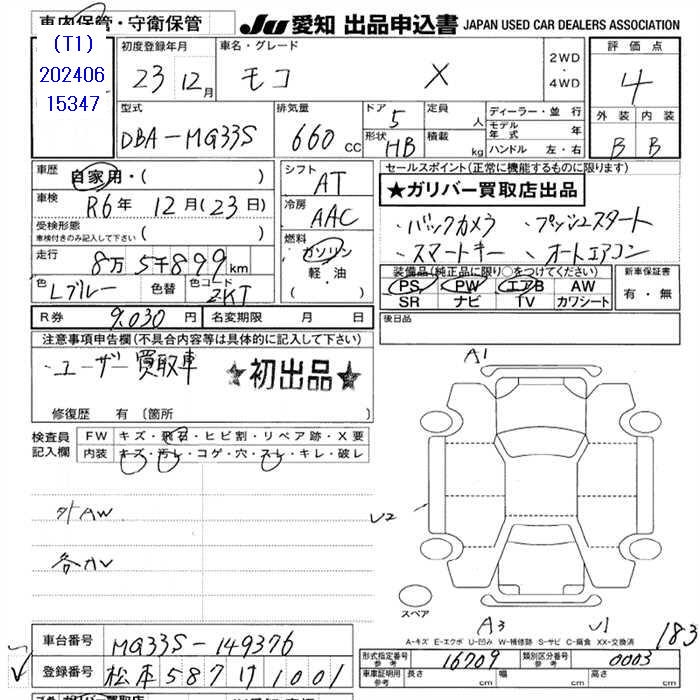 車内保管・守衛保管
JU 愛知 出品申込書 JAPAN USED CAR DEALERS ASSOCIATION
(T1)
202406
15347
初度登録年月
23 12月
車名・グレード
モコ X
2WD
・
4WD
評価点
4
型式
DBA-MG33S
排気量
660 CC
ドア 5
形状 HB
定員 人
積載 kg
ディーラー・並行
モデル年式 年
ハンドル 左・右
外装 内装
B B
車歴 自家用・( )
車検 R6年 12月(23日)
受検形態
車検付きのみ記入して下さい ( )
走行 8万5千899km
色 Lブルー 色替 色コード ZKT
シフト AT
冷房 AAC
燃料
ガソリン
軽・油
( )
セールスポイント(正常に機能するものに限ります)
★ガリバー買取店出品
・バックカメラ ・プッシュスタート
・スマートキー ・オートエアコン
装備品(純正品に限り○をつけてください)
PS PW エアB AW
SR ナビ TV カワシート
新車保証書
有・無
R券 9,030円 名変期限 月 日
後日品
注意事項申告欄(不具合内容等は具体的に記入して下さい)
・ユーザー買取車
★初出品★
修復歴 有〔箇所
検査員記入欄
FW キズ・飛石・ヒビ割・リペア跡・X要
内装 キズ・汚レ・コゲ・穴・スレ・キレ・破レ
外AW
A1
U2
スペア
A3 U1
A-キズ E-エクボ U-凹み W-補修跡 S-サビ C-腐食 XX-交換済
183
車台番号 MG33S-149376
登録番号 松本587 1001
型式指定番号 参考 16709 類別区分番号 参考 0003
車庫証明用 参考 長さ cm 幅 cm 高さ cm